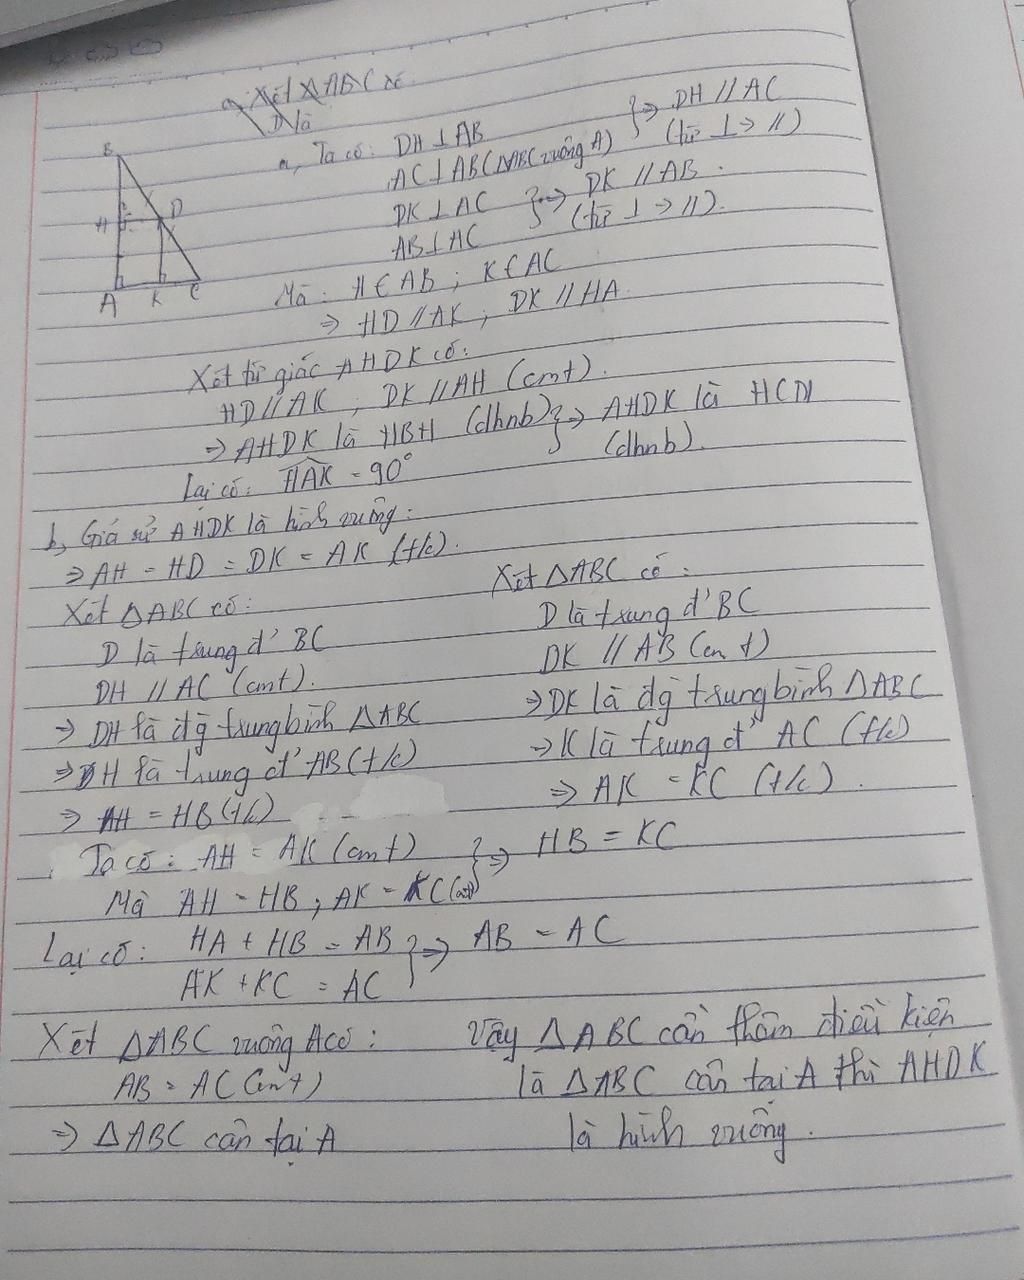 a, Xét ΔABC có
D là
a, Ta có: DH ⊥ AB
AC ⊥ AB (ΔABC vuông A) } => DH // AC (từ ⊥ -> //)
DK ⊥ AC
AB ⊥ AC } => DK // AB. (từ ⊥ -> //).
B
H
D
A
K
C
Mà: H ∈ AB ; K ∈ AC
=> HD // AK ; DK // HA
Xét tứ giác AHDK có:
HD // AK ; DK // AH (cmt).
=> AHDK là HBH (dhnb) } => AHDK là HCN
Lại có: HAK = 90° (dhnb).
b, Giả sử AHDK là hình vuông:
=> AH = HD = DK = AK (t/c).
Xét ΔABC có:
D là trung đ' BC
DH // AC (cmt).
=> DH là đg trung bình ΔABC
=> H là trung đ' AB (t/c)
=> AH = HB (t/c)
Xét ΔABC có:
D là trung đ' BC
DK // AB (cmt)
=> DK là đg trung bình ΔABC
=> K là trung đ' AC (t/c)
=> AK = KC (t/c).
Ta có: AH = AK (cmt)
Mà AH = HB ; AK = KC (cmt) } => HB = KC
Lại có: HA + HB = AB
AK + KC = AC } => AB = AC
Xét ΔABC vuông A có:
AB = AC (cmt)
=> ΔABC cân tại A
Vậy ΔABC cần thêm điều kiện
là ΔABC cân tại A thì AHDK
là hình vuông.